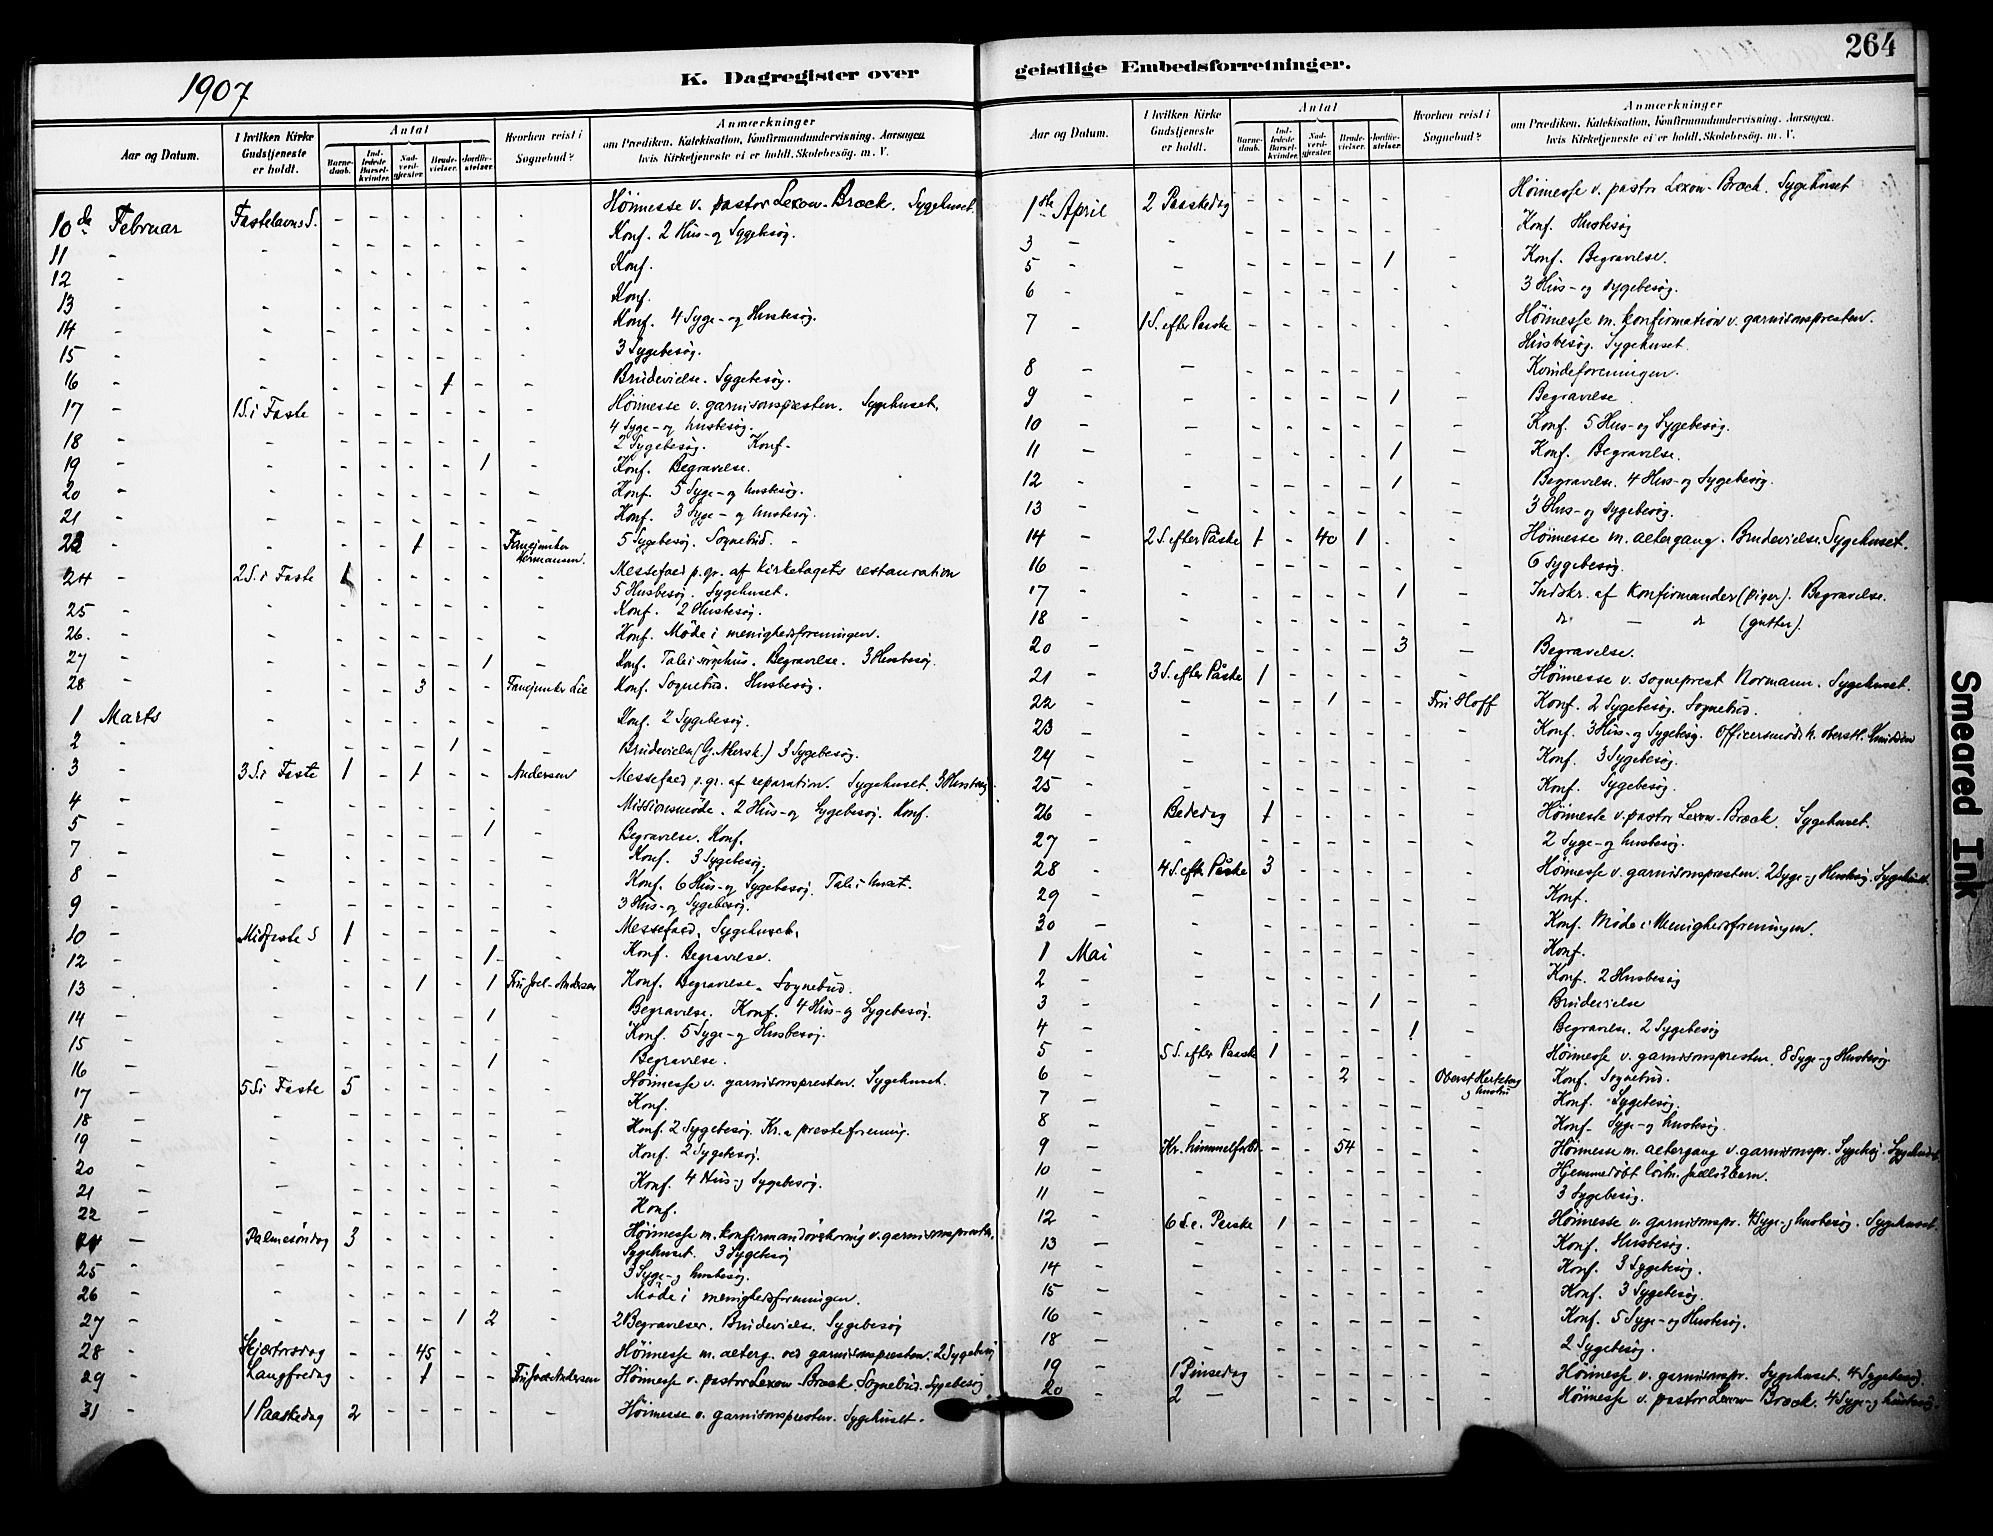 264
1907
K. Dagregister over geistlige Embedsforretninger.
Aar og Datum. I hvilken Kirke Gudstjeneste er holdt. Antal Barnedaab. Indledede Barselkvinder. Nadverdgjester. Brudevielser. Jordfæstelser. Hvorhen reist i Sognebud? Anmærkninger om Prædiken, Katekisation, Konfirmandundervisning. Aarsagen hvis Kirketjeneste ei er holdt. Skolebesög. m. V.
10de Februar Fastelavns S. - - - - - - Höimesse v. pastor Lexow-Bræck. Sygehuset.
11 - - - - - - - - Konf. 2 Hus- og Sygebesög.
12 - - - - - - - - Konf.
13 - - - - - - - - Konf.
14 - - - - - - - - Konf. 4 Syge- og Husbesög.
15 - - - - - - - - 3 Sygebesög.
16 - - - - - 1 - - Brudevielse. Sygebesög.
17 - 1 S. i Faste - - - - - - Höimesse v. garnisonspresten. Sygehuset.
4 Syge- og husbesög.
18 - - - - - - - - 2 Sygebesög. Konf.
19 - - - - - - 1 - Konf. Begravelse.
20 - - - - - - - - Konf. 5 Syge- og husbesög.
21 - - - - - - - - Konf. 3 Syge- og husbesög.
23 - - - - 1 - - Fanejunker Hermansen. 5 Sygebesög. Sognebud.
24 - 2 S. i Faste 1 - - - - - Messefald p. gr. af kirketagets restauration
5 Husbesög. Sygehuset.
25 - - - - - - - - Konf. 2 Husbesög.
26. - - - - - - - - Konf. Möde i menighedsforeningen.
27 - - - - - - 1 - Konf. Tale i sørgehus. Begravelse. 3 Husbesög.
28 - - - - 3 - - Fanejunker Lie Konf. Sognebud. Husbesög.
1 Marts - - - - - - - Konf. 2 Sygebesög.
2 - - - - - 1 - - Brudevielse (G. Mersk.) 3 Sygebesög.
3 - 3 S. i Faste 1 - 1 - - Andersen Messefald p. gr. af reparation. Sygehuset. 3 Husbesög.
4 - - - - - - - - Missionsmöde. 2 Hus- og Sygebesög. Konf.
5 - - - - - - 1 - Begravelse. Konf.
7 - - - - - - - - Konf. 3 Sygebesög.
8 - - - - - - - - Konf. 6 Hus- og Sygebesög. Tale i huset.
9 - - - - - - - - 3 Hus- og Sygebesög.
10 - Midfaste S 1 - - - - - Messefald. Sygehuset.
12 - - - - - - 1 - Konf. Begravelse.
13 - - - - 1 - 1 Fru Joel-Andersen Konf. Begravelse. Sognebud.
14 - - - - - - 1 - Begravelse. Konf. 4 Hus- og Sygebesög.
15 - - - - - - - - Konf. 5 Syge- og Husbesög.
16 - - - - - - 1 - Begravelse.
17 - 5 S. i Faste 5 - - - - - Höimesse v. garnisonspresten. Sygehuset.
18 - - - - - - - - Konf.
19 - - - - - - - - Konf. 2 Sygebesög. Kr.a presteforening.
20 - - - - - - - - Konf. 2 Sygebesög.
21 - - - - - - - - Konf. 4 Hus- og Sygebesög.
22 - - - - - - - - Konf.
24 - Palmesöndag 3 - - - - - Höimesse m. konfirmandoverhöring v. garnisonspresten.
Sygehuset. 3 Sygebesög
25 - - - - - - - - 3 Syge- og husbesög.
26 - - - - - - - - Möde i menighedsforeningen.
27 - - - - - 1 2 - 2 Begravelser. Brudevielse. Sygebesög
28 - Skjærtorsdag - - 45 - - - Höimesse m. alterg. ved garnisonspresten. 2 Sygebesög
29 - Langfredag - - 1 - - Fru Joel Andersen Höimesse v. pastor Lexow-Bræck. Sognebud. Sygebesög
31 - 1 Paaskedag 2 - - - - - Höimesse v. garnisonspresten. Sygehuset.
Aar og Datum. I hvilken Kirke Gudstjeneste er holdt. Antal Barnedaab. Indledede Barselkvinder. Nadverdgjester. Brudevielser. Jordfæstelser. Hvorhen reist i Sognebud? Anmærkninger om Prædiken, Katekisation, Konfirmandundervisning. Aarsagen hvis Kirketjeneste ei er holdt. Skolebesög. m. V.
1ste April 2 Paaskedag - - - - - - Höimesse v. pastor Lexow-Bræck. Sygehuset
3 - - - - - - - Konf. Husbesög
5 - - - - - - 1 - Konf. Begravelse.
6 - - - - - - - - 3 Hus- og Sygebesög.
7 - 1 S. efter Paaske - - - - - - Höimesse m. konfirmation v. garnisonspresten.
Husbesög. Sygehuset.
8 - - - - - - - - Kvindeforeningen.
9 - - - - - - 1 - Begravelse
10 - - - - - - - - Konf. 5 Hus- og Sygebesög.
11 - - - - - - 1 - Konf. Begravelse.
12 - - - - - - 1 - Begravelse. 4 Hus- og Sygebesög.
13 - - - - - - - - 3 Hus- og Sygebesög.
14 - 2 S. efter Påske 1 - 40 1 - - Höimesse m. altergang. Brudevielse. Sygehuset.
16 - - - - - - - - 6 Sygebesög.
17 - - - - - - 1 - Indskr. af konfirmander (piger). Begravelse.
18 - - - - - - - - do - do (gutter).
20 - - - - - - 3 - Begravelse.
21 - 3 S. efter Påske 1 - - - - - Höimesse v. sogneprest Normann. Sygehuset.
22 - - - - 1 - - Fru Hoff Konf. 2 Sygebesög. Sognebud.
23 - - - - - - - - Konf. 3 Hus- og Sygebesög. Officersmöde h. oberstl.
24 - - - - - - - - Konf. 3 Sygebesög.
25 - - - - - - - - Konf. Sygebesög.
26 - Bededag 1 - - - - - Höimesse v. pastor Lexow-Bræck. Sygehuset.
27 - - - - - - - - 2 Syge- og husbesög.
28 - 4 S. eft. Påske 3 - - - - - Höimesse v. garnisonspresten. 2 Syge- og Husbesög. Sygehuset.
29 - - - - - - - - Konf.
30 - - - - - - - - Konf. Möde i Menighedsforeningen.
1 Mai - - - - - - - Konf.
2 - - - - - - - - Konf. 2 Husbesög
3 - - - - - 1 - - Brudevielse
4 - - - - - - 1 - Begravelse. 2 Sygebesög
5 - 5 S. efter Paaske 1 - - - - - Höimesse v. garnisonspresten. 8 Syge- og Husbesög
6 - - - - 2 - - Oberst Hertzberg og hustru Konf. Sognebud.
7 - - - - - - - - Konf. Sygebesög.
8 - - - - - - - - Konf. Syge- og husbesög.
9 - Kr. himmelfartsd. - - 54 - - - Höimesse m. altergang v. garnisonspr. Sygebesög. Sygehuset.
10 - - - - - - - - Hjemmedöbt löitn. 2 barn.
11 - - - - - - - - 3 Sygebesög.
12 - 6 S. e. Paaske 1 - - - - - Höimesse v. garnisonspr. 4 Syge- og husbesög. Sygehuset.
13 - - - - - - - - Konf. Husbesög.
14 - - - - - - - - Konf. 3 Sygebesög.
15 - - - - - - - - Konf. 3 Sygebesög.
16 - - - - - - - - Konf. 5 Syge- og Husbesög.
18 - - - - - - - - 2 Sygebesög.
19 - 1 Pinsedag - - - - - - Höimesse v. garnisonspr. Sygehuset. 4 Sygebesög.
20 - 2 - - - - - - - Höimesse v. pastor Lexow-Bræck. 4 Syge- og husbesög.
Smeared Ink